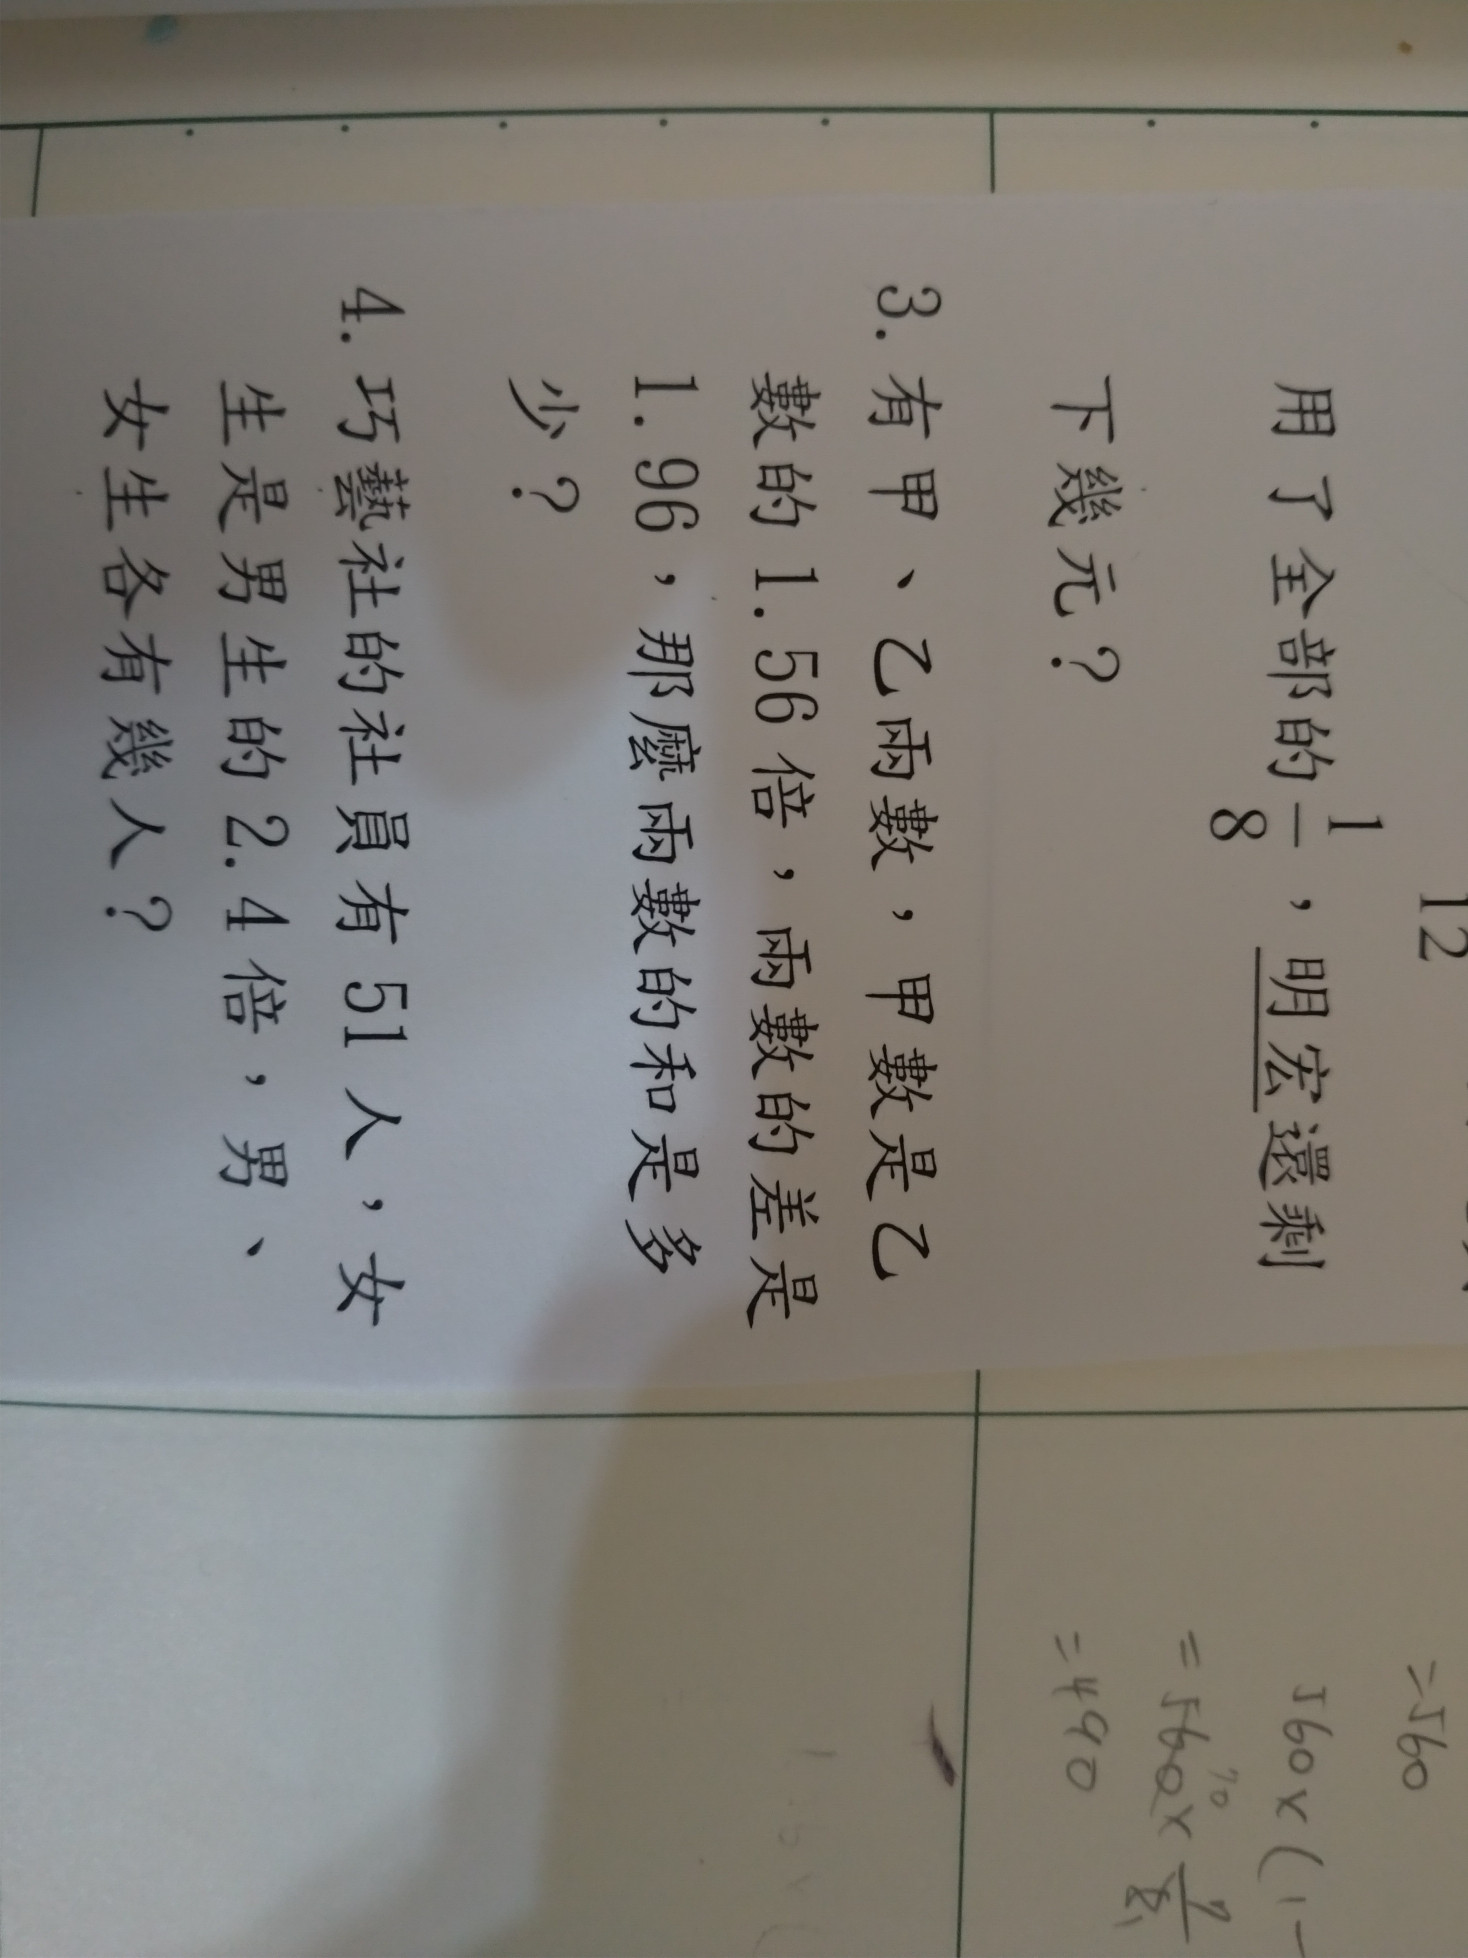 12
用了全部的1/8，明宏還剩
下幾元？
3.有甲、乙兩數，甲數是乙
數的1.56倍，兩數的差是
1.96，那麼兩數的和是多
少？
4.巧藝社的社員有51人，女
生是男生的2.4倍，男、
女生各有幾人？
=560
560×(1-
=560×7/8
=490